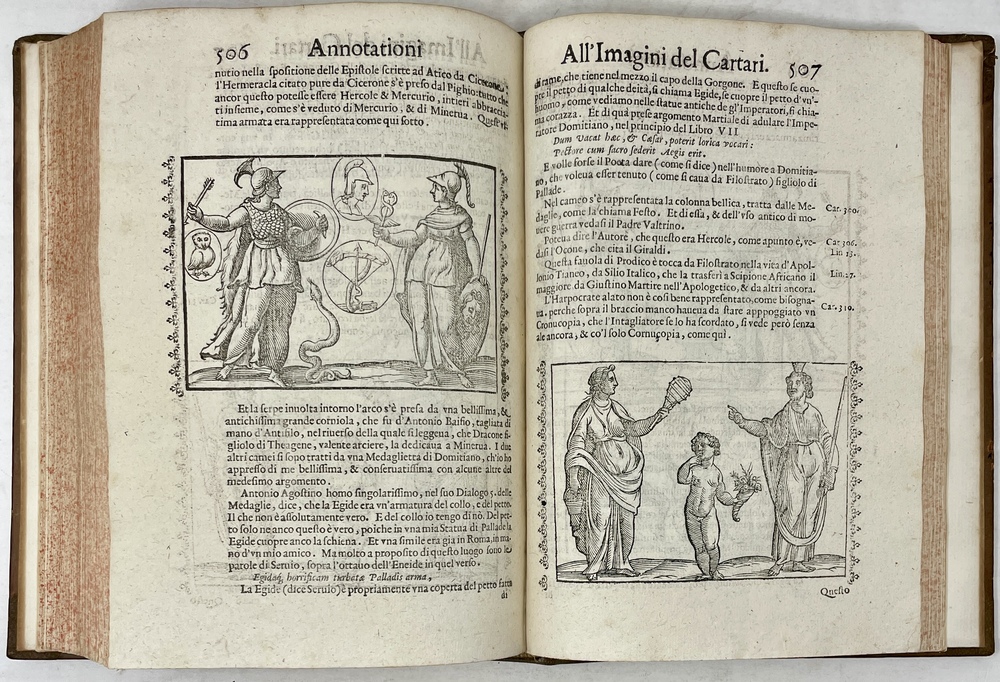 506 Annotationi
nutio nella spositione delle Epistole scritte ad Atico da Cicerone,
l'Hermeracla citato pure da Cicerone s'è preso dal Pighio: tutto che
ancor questo potesse essere Hercole & Mercurio, intieri abbraccia-
ti insieme, come s'è veduto di Mercurio, & di Minerua. Quest'vl-
tima armata era rappresentata come qui sotto.
Et la serpe inuolta intorno l'arco s'è presa da vna bellissima, &
antichissima grande corniola, che fu d'Antonio Baisio, tagliata di
mano d'Antiblo, nel riuerso della quale si leggeua, che Dracone fi-
gliolo di Theagene, valente arciere, la dedicaua a Minerua. I due
altri camei si sono tratti da vna Medaglietta di Domitiano, ch'io ho
appresso di me bellissima, & conseruatissima con alcune altre del
medesimo argomento.
Antonio Agostino homo singolarissimo, nel suo Dialogo 5. delle
Medaglie, dice, che la Egide era vn'armatura del collo, e del petto.
Il che non è assolutamente vero. E del collo io tengo di nò. Del pet-
to solo ne anco questo è vero, poiche in vna mia Statua di Pallade la
Egide cuopre anco la schiena. Et vna simile era già in Roma, in ma-
no d'vn mio amico. Ma molto a proposito di questo luogo sono le
parole di Seruio, sopra l'ottauo dell'Eneide in quel verso.
Egidaq; horrificam turbatæ Palladis arma,
La Egide (dice Seruio) è propriamente vna coperta del petto fatta
di
All'Imagini del Cartari. 507
di rame, che tiene nel mezzo il capo della Gorgone. E questo se cuo-
pre il petto di qualche deità, si chiama Egide, se cuopre il petto d'vn'-
huomo, come vediamo nelle statue antiche de gl'Imperatori, si chia-
ma corazza. Et di quà prese argomento Martiale di adulare l'Impe-
ratore Domitiano, nel principio del Libro VII
Dum vacat hæc, & Cæsar, poterit lorica vocari:
Pectore cum sacro sederit Aegis erit.
E volle forse il Poeta dare (come si dice) nell'humore a Domitia-
no, che voleua esser tenuto (come si caua da Filostrato) figliolo di
Pallade.
Nel cameo s'è rappresentata la colonna bellica, tratta dalle Me-
daglie, come la chiama Festo. Et di essa, & dell'vso antico di mo-
uere guerra vedasi il Padre Valtrino.
Car. 300.
Poteua dire l'Autore, che questo era Hercole, come apunto è, ve-
dasi l'Oïone, che cita il Giraldi.
Car 306.
Lin 15.
Questa fauola di Prodico è tocca da Filostrato nella vita d'Apol-
lonio Tianeo, da Silio Italico, che la trasferì a Scipione Africano il
maggiore da Giustino Martire nell'Apologetico, & da altri ancora.
Lin. 27.
L'Harpocrate alato non è così bene rappresentato, come bisogna-
ua. perche sopra il braccio manco haueua da stare apppoggiato vn
Cronucopia, che l'Intagliatore se lo ha scordato, si vede però senza
ale ancora, & co'l solo Cornucopia, come quì.
Car. 310.
Questo